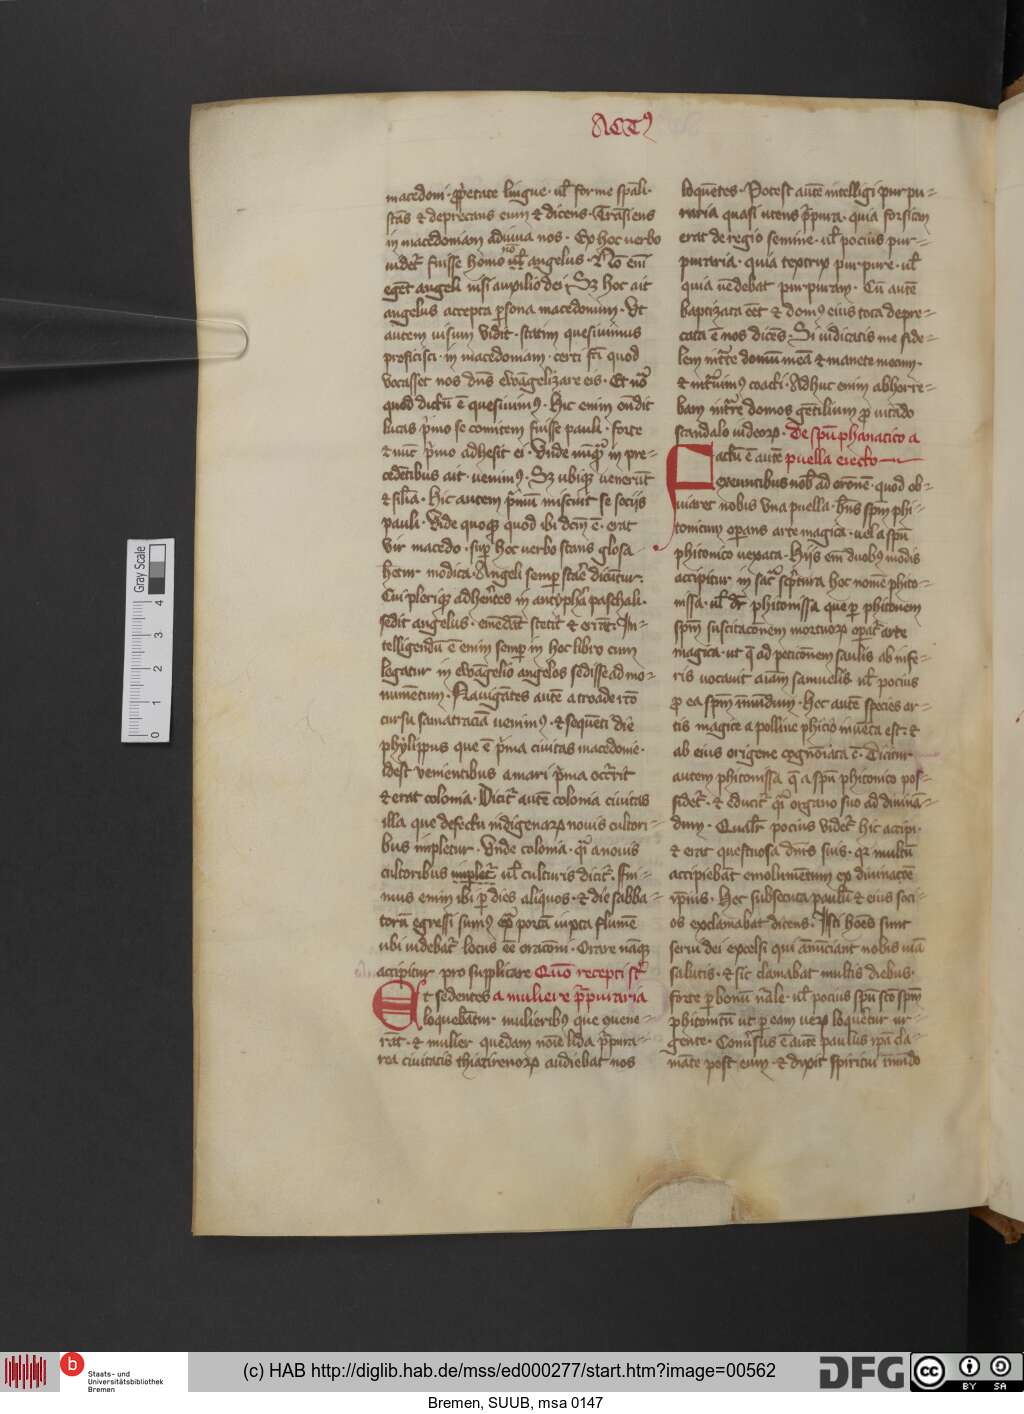 Actꝰ
macedoni · ꝓp̄etate lingue · ul̄ forme sp̄ali ·
stās & deprecans eum & dicens · Trāsiens
in macedoniam adiuua nos · Ex hoc uerbo
uidet̄ fuisse homo nō ul̄ angelus · Nō em̄
egēt angeli nisi auxilio dei Sꝫ hoc ait
angelus accepta p̄sona macedonum · Ut
autem uisum vidit · statim quesiuimus
proficisci · in macedoniam · certi fc̄i quod
vocasset nos dn̄s ewāgelizare eis · Et nō
quod dictū ē quesiuimꝰ · Hic enim on̄dit
lucas p̄mo se comitem fuisse pauli · forte
& tūc p̄mo adhesit ei · Unde in pre-
cedētibus ait · uenimꝰ · Sꝫ ubiqꝫ uenerūt
& silīa · hic autem p̄mū miscuit se sociis
pauli · vide quoqꝫ quod ibi dc̄m ē · erat
vir macedo · suꝑ hoc verbo stans glosa
hetur modica · Angeli semꝑ stāe dicūtur ·
Cui pleriqꝫ adhērtes in antyphā paschali ·
sedit angelus · emēdāt stetit & erāt · In-
telligendū ē enim semꝑ in hoc libro cum
legatur in ewāgelio angelos sedisse ad mo-
numētum · Nauigātes autē a troade rc̄o
cursu samatraciā uenimꝰ · & sequēti die
phylippus que ē p̄ima ciuitas macedonie ·
Idest venientibus a mari p̄ima occ̄rit
& erat colonia · Dicit̄ autē colonia ciuitas
illa que defectu indigenaꝝ nouis cultori-
bus impletur · Unde colonia · qͥ a nouis
cultoribus implet̄ ul̄ culturis dicit̄ · Fui-
mus enim ibi ꝑ dies aliquos · & die sabba-
torū egressi sumꝰ ex̄ portā iuxta flumē
ubi uidebat̄ locus eē oracōni · Orare nāqꝫ
accipitur pro supplicare Quō recepti st̄
Et sedentes a muliere p̄puraria
loquebātur mulieribꝰ que 9uene-
rāt · & mulier quedam noīe lidia p̄pura-
rea ciuitatis thiatirenoꝝ audiebat nos
loquētes · Potest autē intelligi purpu-
raria quasi utens p̄pura · quia forsitan
erat de regio semine · ul̄ pocius pur-
puraria · quia textrix purpure · ul̄
quia uēdebat purpuram · Cū autē
baptizata eēt & domꝰ eius tota depre-
cata ē nos dicēs · Si iudicatis me fide-
lem int̄te domū meā & manete mecum ·
& int̄uimꝰ coacti · Adhuc enim abhorre-
bam int̄re domos gētilium ꝓ uitādo
scandalo iudeoꝝ · De sp̄u phanatico a
Factū ē autē puella eiecto
exeuntibus nobꝭ ad or̄onē · quod ob-
uiaret nobis vna puella · hn̄s sp̄m phi-
tonicum oꝑans arte magica · uel a sp̄u
phitonico uexata · Hiis em̄ duobꝰ modis
accipitur in sac̄ sc̄ptura hoc nomē phito-
nissa · ul̄ dr̄ phitonissa que ꝑ phitonem
sp̄m suscitacōnem mortuoꝝ oꝑat̄ arte
magica · ut q̄ ad peticōnem saulis ab infe-
ris uocauit aīam samuelis ul̄ pocius
ꝓ ea sp̄m inmūdum · Hec autē species ar-
tis magice a polline phicio inuēta est : &
ab eius origene cognoīata ē · Dicitur
autem phitonissa q̄ a sp̄u phitonico pos-
sidet̄ · & educit̄ qͥ organo suo ad diuinā-
dum · Qualr̄ pocius videt̄ hic accipi ·
& erat questuosa dn̄is suis · qr̄ multū
accipiebāt emolumētum ex diuinacōe
ip̄ius · Hec subsecuta paulū & eius soci-
os exclamabat dicens · Isti hoēs sunt
serui dei excelsi qui annūciant nobis uiā
salutis · & sic clamabat multis diebus ·
forte ꝑ bonū nāle · ul̄ pocius sp̄u sc̄o sp̄m
phitonicū ut ꝑ eam ueꝝ loquētur ur-
gente · Conūsus ē autē paulus ip̄a cla-
māte post eum · & dixit spiritui inmūdo
Gray Scale
4
3
2
1
0
b
Staats- und
Universitätsbibliothek
Bremen
(c) HAB http://diglib.hab.de/mss/ed000277/start.htm?image=00562
DFG
cc
BY SA
Bremen, SUUB, msa 0147